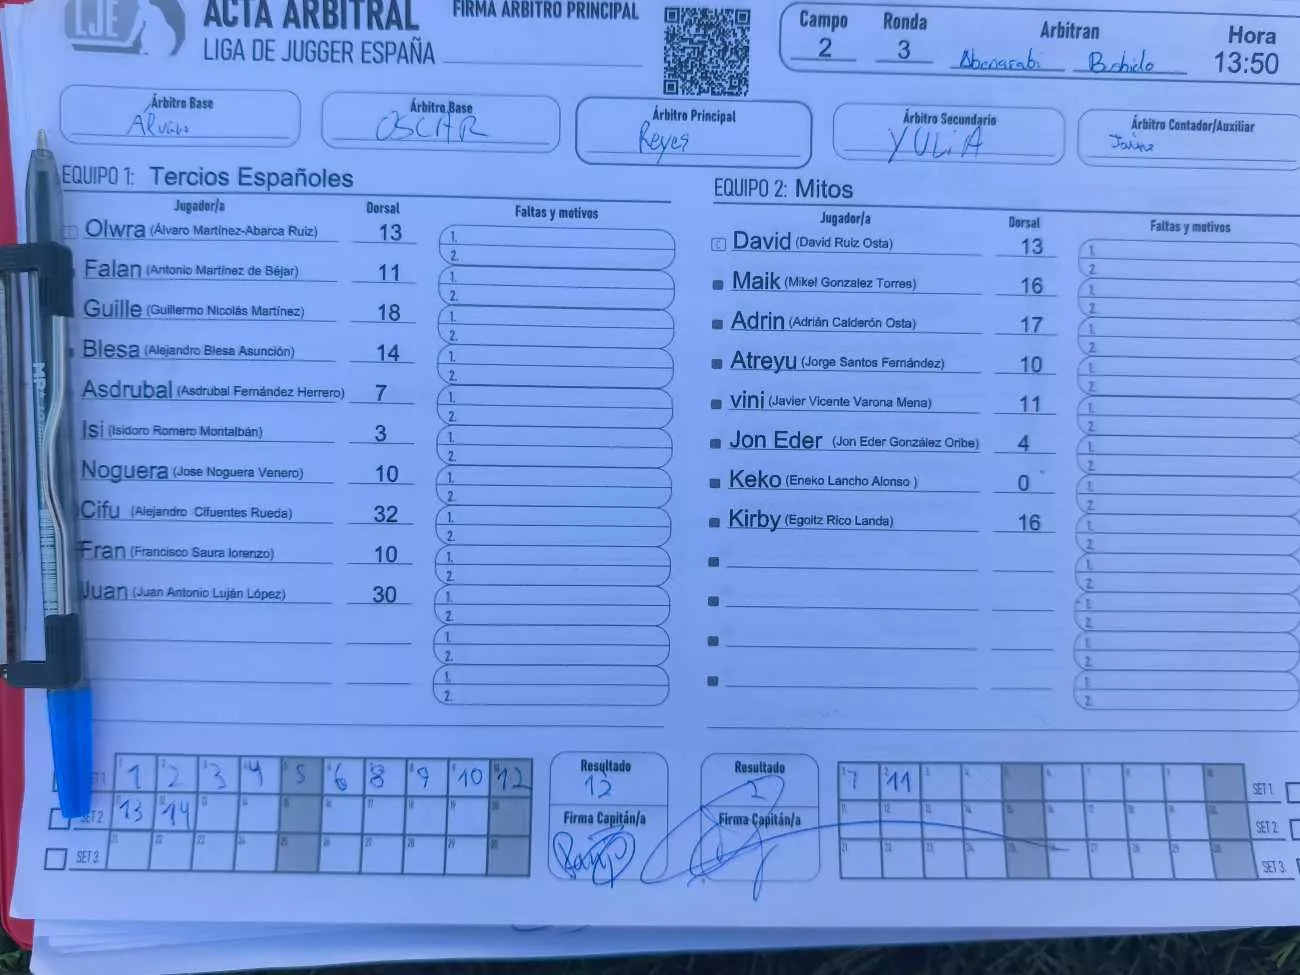 LJE
ACTA ARBITRAL
LIGA DE JUGGER ESPAÑA
FIRMA ARBITRO PRINCIPAL
Campo Ronda Arbitran Hora
2 3 Abenarabi Bushido 13:50
Árbitro Base Árbitro Base Árbitro Principal Árbitro Secundario Árbitro Contador/Auxiliar
Álvaro OSCAR Reyes YULIA Jaime
EQUIPO 1: Tercios Españoles
Jugador/a Dorsal Faltas y motivos
Olwra (Álvaro Martínez-Abarca Ruiz) 13 1. 2.
Falan (Antonio Martínez de Béjar) 11 1. 2.
Guille (Guillermo Nicolás Martínez) 18 1. 2.
Blesa (Alejandro Blesa Asunción) 14 1. 2.
Asdrubal (Asdrubal Fernández Herrero) 7 1. 2.
Isi (Isidoro Romero Montalbán) 3 1. 2.
Noguera (Jose Noguera Venero) 10 1. 2.
Cifu (Alejandro Cifuentes Rueda) 32 1. 2.
Fran (Francisco Saura lorenzo) 10 1. 2.
Juan (Juan Antonio Luján López) 30 1. 2.
1. 2.
1. 2.
EQUIPO 2: Mitos
Jugador/a Dorsal Faltas y motivos
C David (David Ruiz Osta) 13 1. 2.
Maik (Mikel Gonzalez Torres) 16 1. 2.
Adrin (Adrián Calderón Osta) 17 1. 2.
Atreyu (Jorge Santos Fernández) 10 1. 2.
vini (Javier Vicente Varona Mena) 11 1. 2.
Jon Eder (Jon Eder González Oribe) 4 1. 2.
Keko (Eneko Lancho Alonso ) 0 1. 2.
Kirby (Egoitz Rico Landa) 16 1. 2.
1. 2.
1. 2.
1. 2.
1. 2.
1 2 3 4 5 6 8 9 10 12
SET 2 13 14
SET 3
Resultado
12
Firma Capitán/a
Resultado
2
Firma Capitán/a
7 11 SET 1
SET 2
SET 3